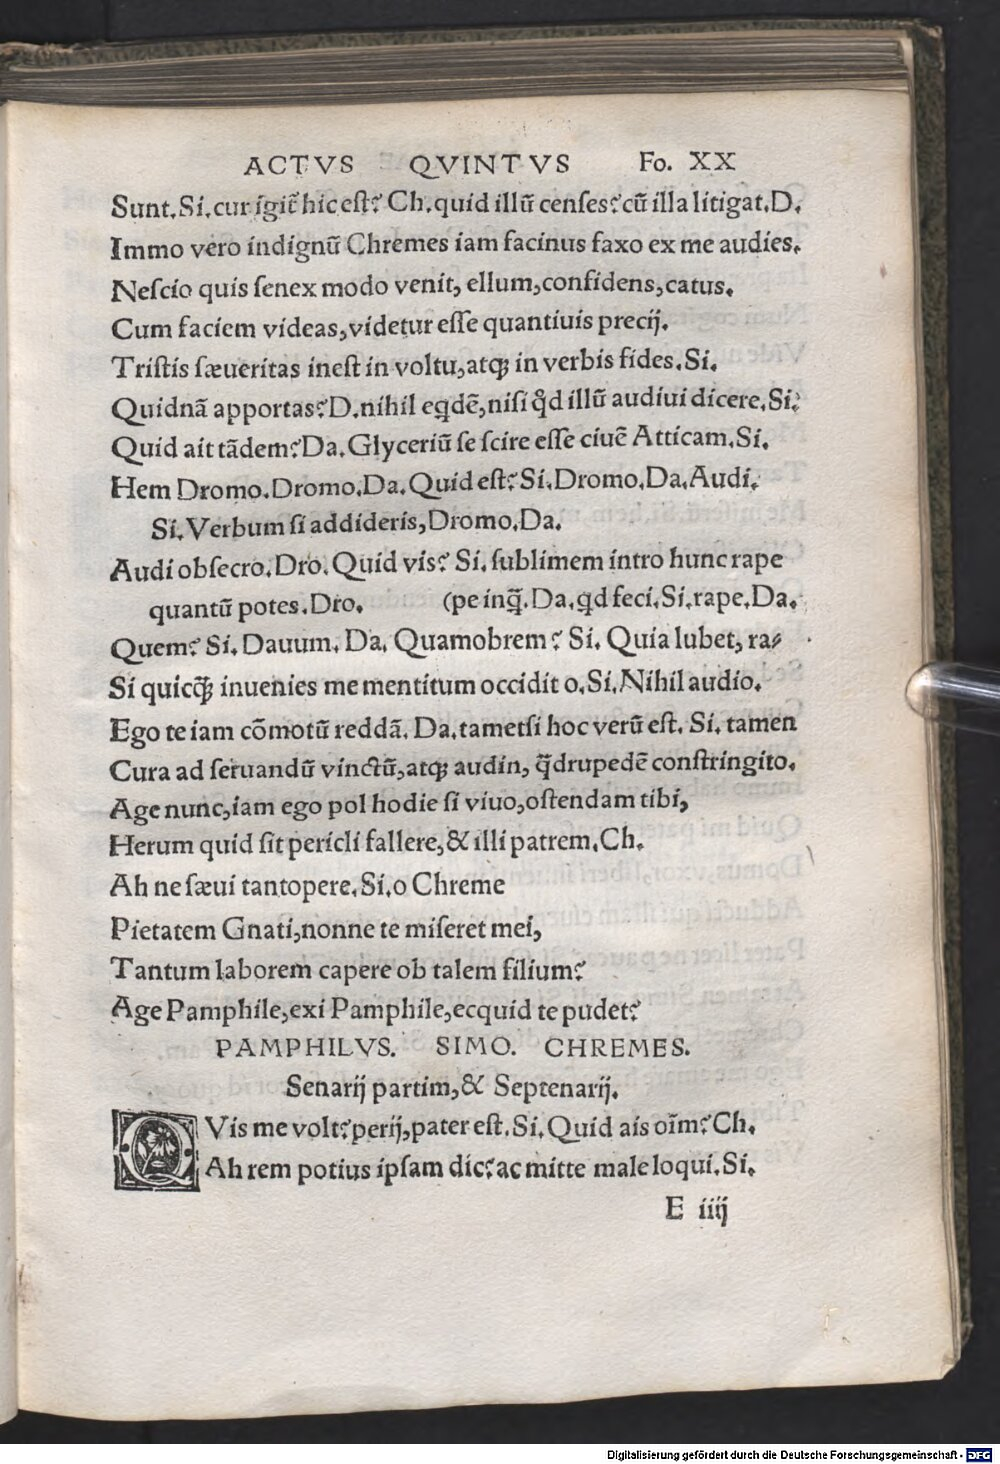 ACTVS QVINTVS Fo. XX
Sunt. Si. cur igit᷑ hic est? Ch. quid illū censes? cū illa litigat. D.
Immo vero indignū Chremes iam facinus faxo ex me audies.
Nescio quis senex modo venit, ellum, confidens, catus.
Cum faciem videas, videtur esse quantiuis precij.
Tristis sæueritas inest in voltu, atqꝫ in verbis fides. Si.
Quidnā apportas? D. nihil eqdē, nisi qd illū audiui dicere. Si.
Quid ait tādem? Da. Glyceriū se scire esse ciuē Atticam. Si.
Hem Dromo. Dromo. Da. Quid est? Si. Dromo. Da. Audi.
Si. Verbum si addideris, Dromo. Da.
Audi obsecro. Dro. Quid vis? Si. sublimem intro hunc rape
quantū potes. Dro. (pe inq̄. Da. qd feci. Si. rape. Da.
Quem? Si. Dauum. Da. Quamobrem? Si. Quia lubet, ra⸗
Si quicq̄ꝫ inuenies me mentitum occidito. Si. Nihil audio.
Ego te iam cōmotū reddā. Da. tametsi hoc verū est. Si. tamen
Cura ad seruandū vinctū, atqꝫ audin, q̄drupedē constringito.
Age nunc, iam ego pol hodie si viuo, ostendam tibi,
Herum quid sit pericli fallere, & illi patrem. Ch.
Ah ne sæui tantopere. Si. o Chreme
Pietatem Gnati, nonne te miseret mei,
Tantum laborem capere ob talem filium?
Age Pamphile, exi Pamphile, ecquid te pudet?
PAMPHILVS. SIMO. CHREMES.
Senarij partim, & Septenarij.
QVis me volt? perij, pater est. Si. Quid ais oīm? Ch.
Ah rem potius ipsam dic? ac mitte male loqui. Si.
E iiij
Digitalisierung gefördert durch die Deutsche Forschungsgemeinschaft - DFG